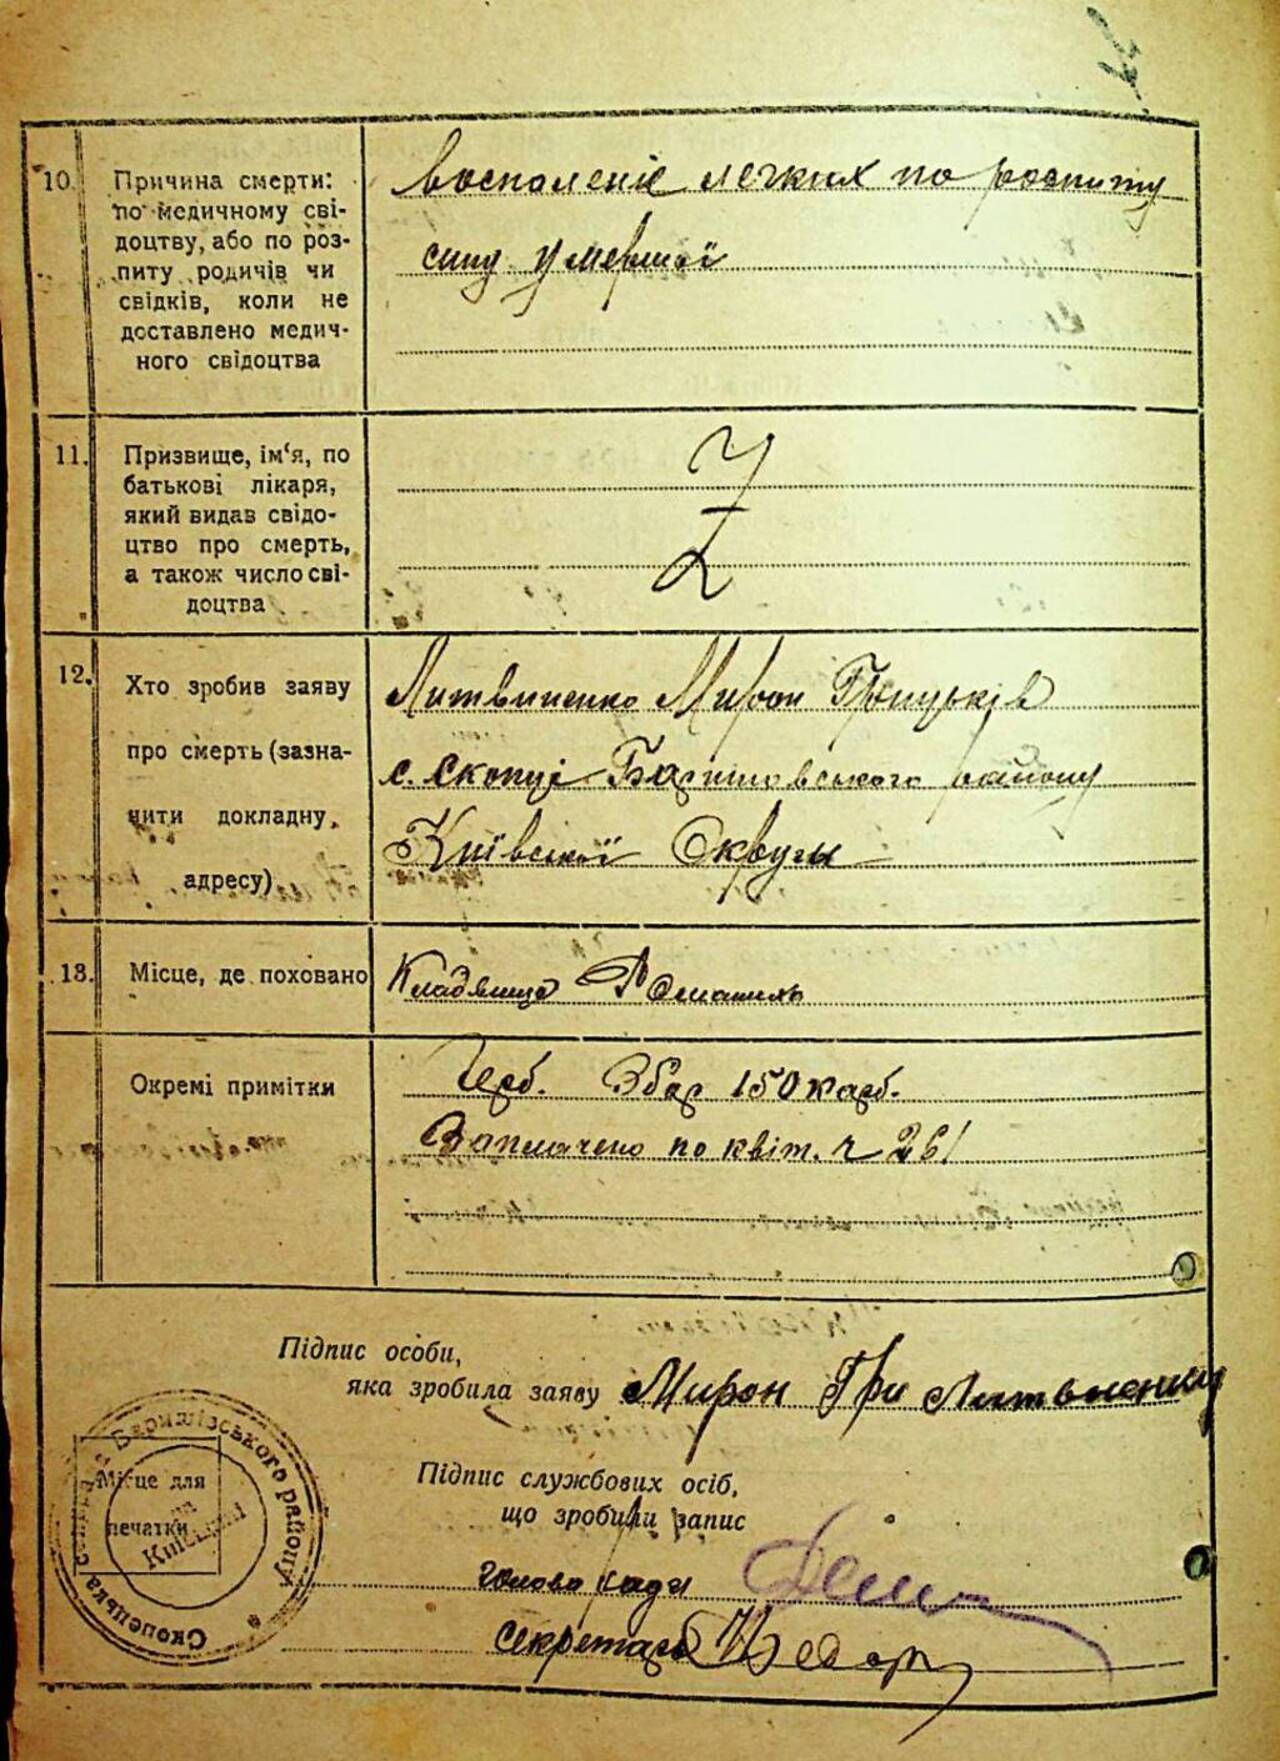 10. Причина смерти:
по медичному сві-
доцтву, або по роз-
питу родичів чи
свідків, коли не
доставлено медич-
ного свідоцтва
воспаленіе легких по розпиту
сину умершої
11. Призвище, ім‘я, по
батькові лікаря,
який видав свідо-
цтво про смерть,
а також число сві-
доцтва
12. Хто зробив заяву
про смерть (зазна-
чити докладну
адресу)
Литвиненко Мирон Грицьків
с. Скопці Баришовського району
Київської Округы
13. Місце, де поховано
Кладвище
Окремі примітки
Герб. Збор 150 карб.
Заплачено по квіт. ч 261
Підпис особи,
яка зробила заяву Мирон Гри Литвиненко
Підпис службових осіб,
що зробили запис
голова ради
секретарь
Місце для
печатки
Скопецька Баришівського району
на Київщині